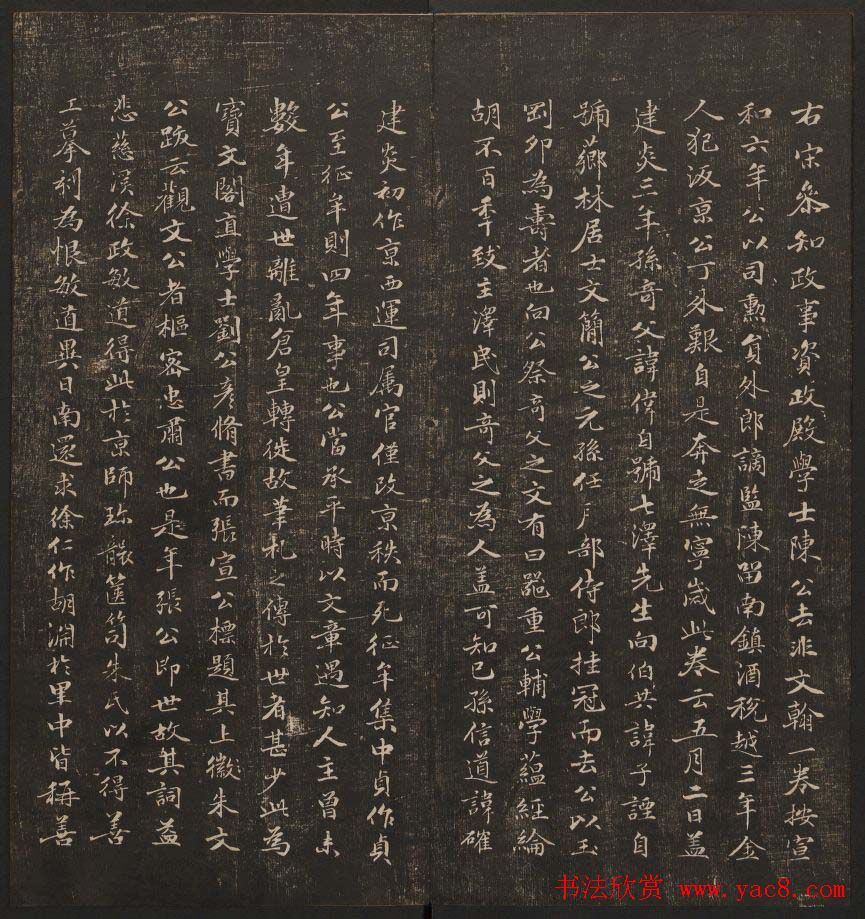 右宋叅知政事資政殿學士陳公去非文翰一卷按宣
和六年公以司勲負外郎謫監陳留南鎮酒稅越三年金
人犯汳京公丁外艱自是奔走無寧歲此卷云五月二日盖
建炎三年孫竒父諱偉自號七澤先生向伯共諱子諲自
號薌林居士文簡公之元孫任戶部侍郎挂冠而去公以玉
剛卯為壽者也向公祭竒父之文有曰噐重公輔學蘊經綸
胡不百年致主澤民則竒父之為人盖可知已孫信道諱確
建炎初作京西運司属官僅改京秩而死征牟集中貞作貞
公至征牟則四年事也公當承平時以文章遇知人主曾未
數年遭世離亂倉皇轉徙故筆札之傳於世者甚少此為
寶文閣直學士劉公彦脩書而張宣公標題其上徽朱文
公跋云觀文公者樞密忠肅公也是年張公即世故其詞益
悲慈溪徐政敏道得此於京師珎襲篋笥朱氏以不得善
工摹刋為恨敏道異日南還求徐仁作胡淵於里中皆稱善
书法欣赏 www.yac8.com